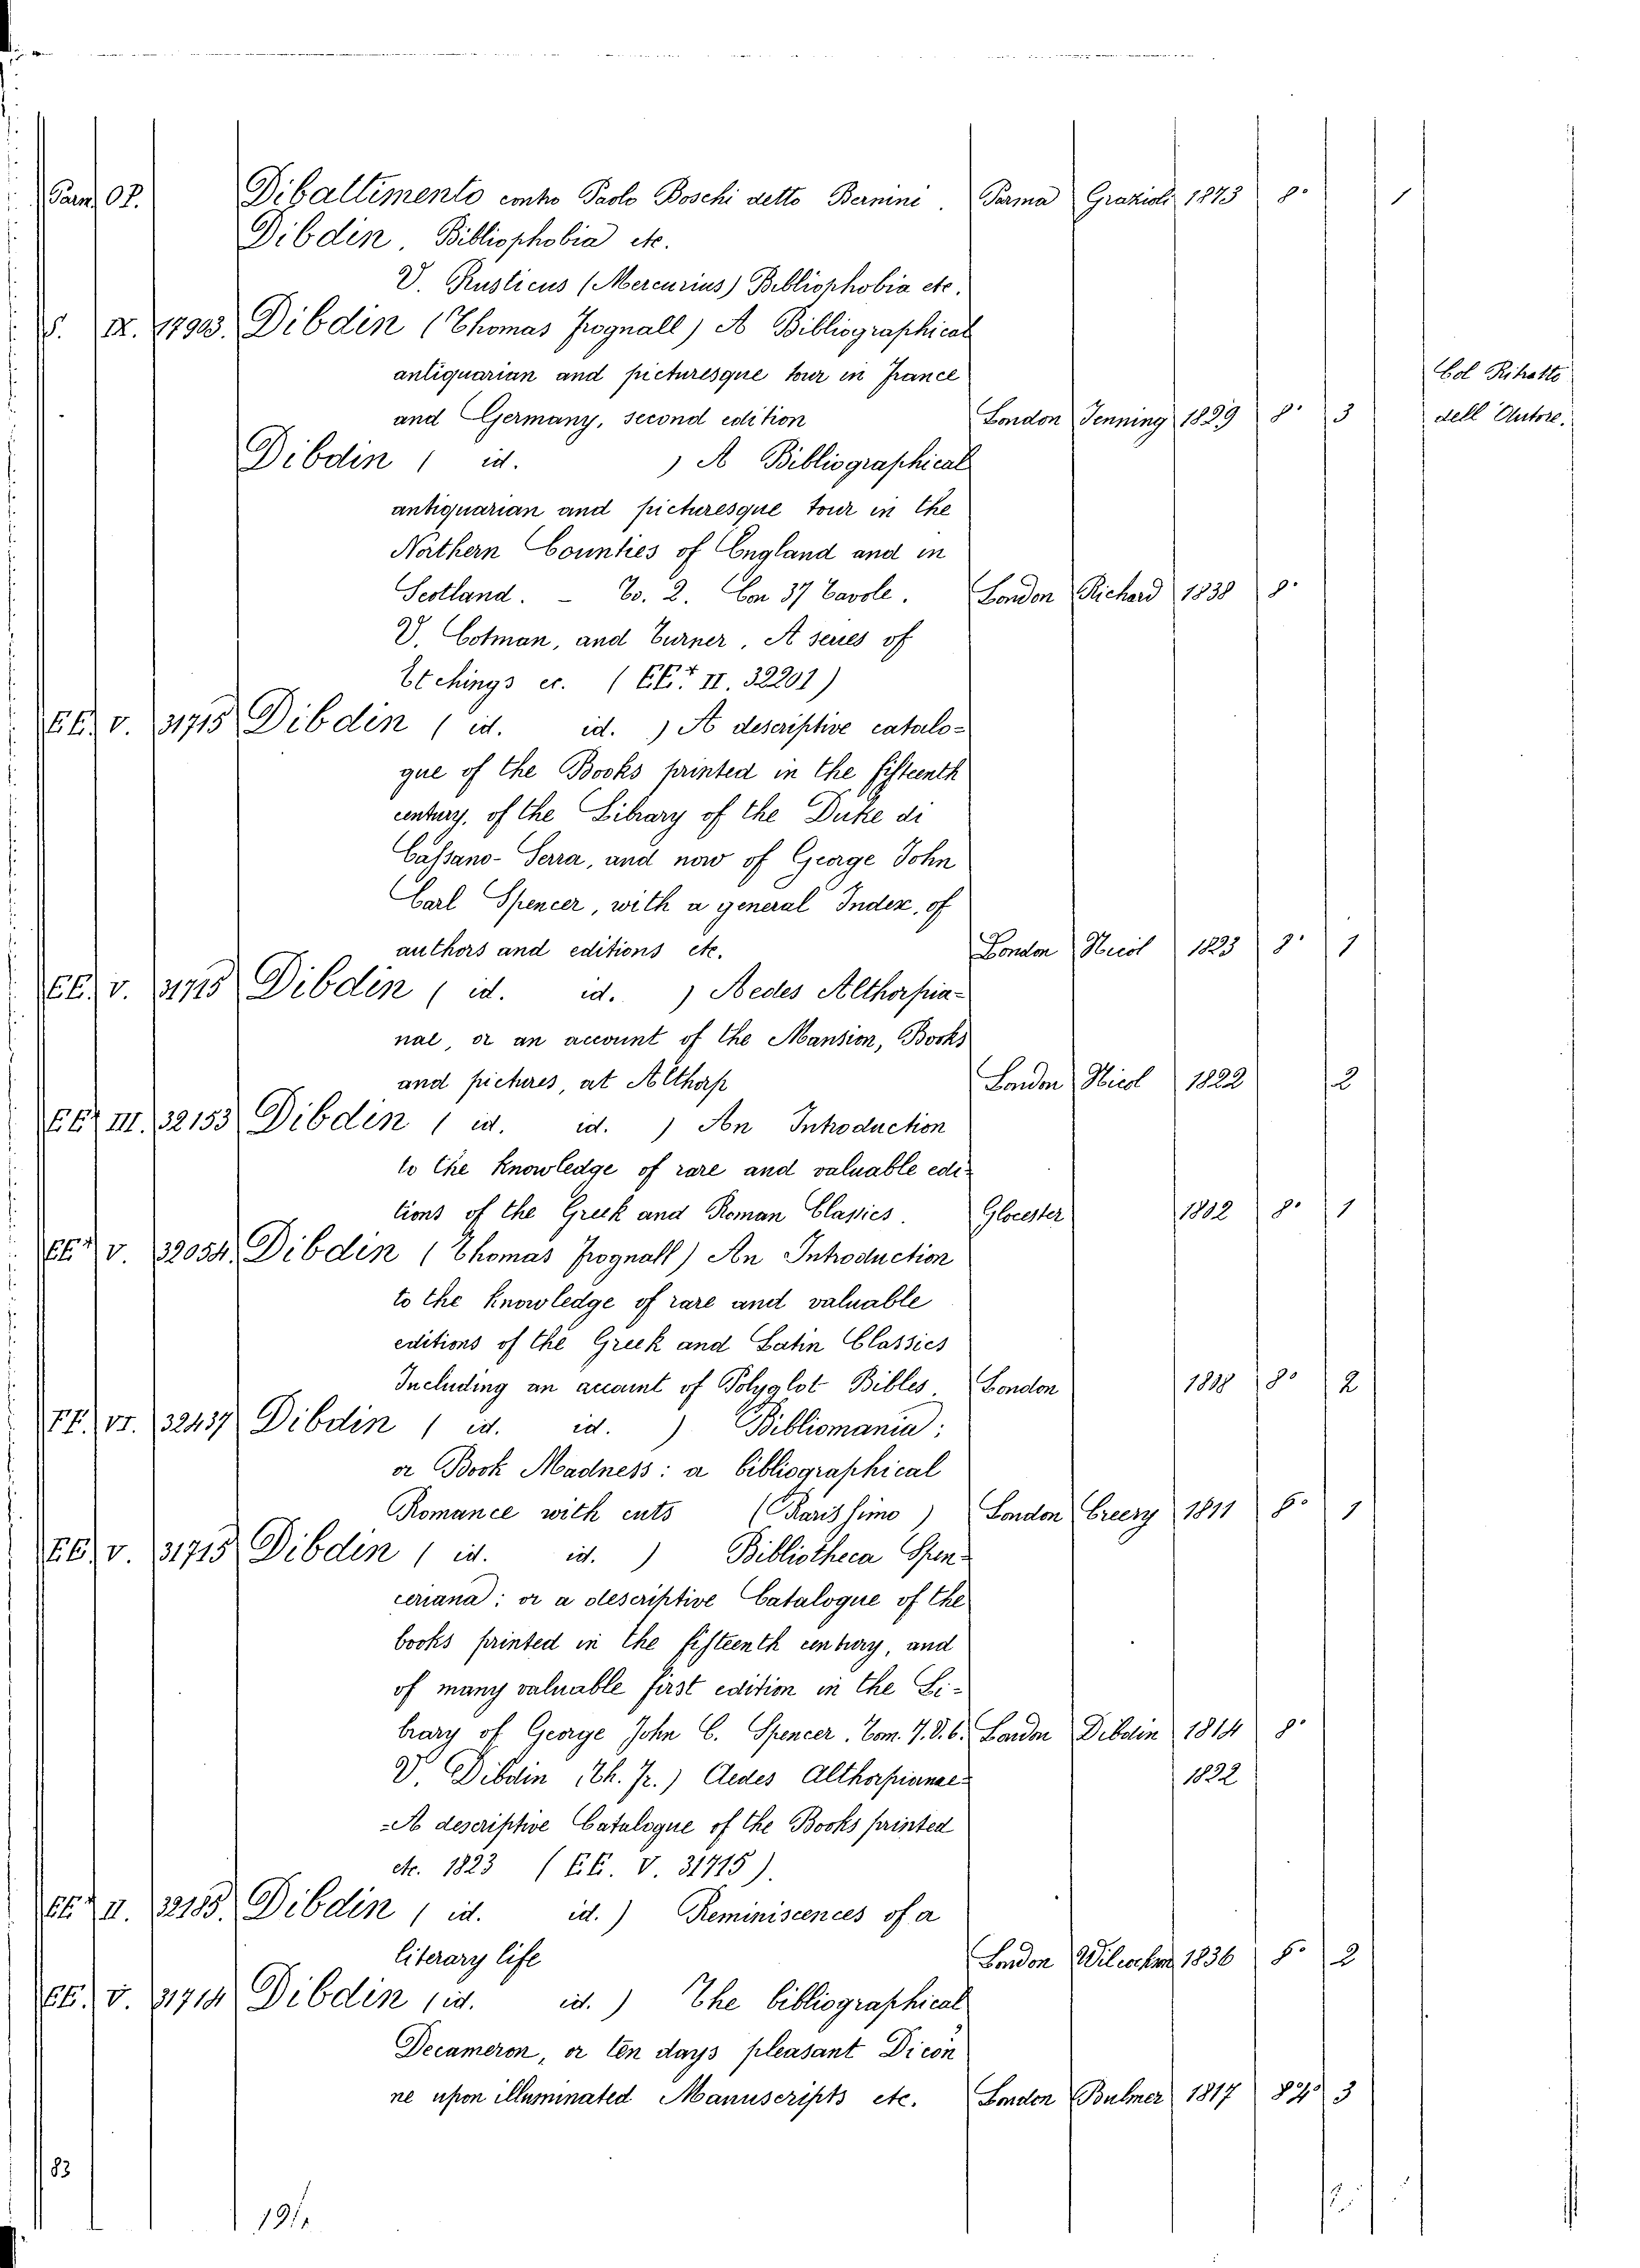 Parm. 07. Dibattimento contro Paolo Boschi detto Bernini. Parma Grazioli 1873 8° 1
Dibdin, Bibliophobia etc.
V. Rusticus (Mercurius) Bibliophobia etc.
S. IX. 17903. Dibdin (Thomas Frognall) A Bibliographical
antiquarian and picturesque tour in France Col Ritratto
and Germany, second edition London Jenning 1829 8° 3 dell'Autore.
Dibdin ( id. ) A Bibliographical
antiquarian and picturesque tour in the
Northern Counties of England and in
Scotland. - To. 2. Con 37 Tavole. London Richard 1838 8°
V. Cotman, and Turner, A series of
Etchings ec. (EE.+ II. 32201)
EE. V. 31715 Dibdin ( id. id. ) A descriptive catalo-
gue of the Books printed in the fifteenth
century, of the Library of the Duke di
Cassano-Serra, and now of George John
Earl Spencer, with a general Index, of
authors and editions etc. London Nicol 1823 8° 1
EE. V. 31715 Dibdin ( id. id. ) Aedes Althorpia-
nae, or an account of the Mansion, Books
and pictures, at Althorp London Nicol 1822 2
EE+ III. 32153 Dibdin ( id. id. ) An Introduction
to the knowledge of rare and valuable edi-
tions of the Greek and Roman Classics. Glocester 1802 8° 1
EE+ V. 32054. Dibdin (Thomas Frognall) An Introduction
to the knowledge of rare and valuable
editions of the Greek and Latin Classics
Including an account of Polyglot Bibles. London 1808 8° 2
FF. VI. 32437 Dibdin ( id. id. ) Bibliomania;
or Book Madness: a bibliographical
Romance with cuts (Rarissimo) London Creery 1811 8° 1
EE. V. 31715 Dibdin ( id. id. ) Bibliotheca Spen-
ceriana; or a descriptive Catalogue of the
books printed in the fifteenth century, and
of many valuable first edition in the Li-
brary of George John C. Spencer. Tom. 7. V. 6. London Dibdin 1814 8°
V. Dibdin (Th. Fr.) Aedes Althorpianae 1822
-A descriptive Catalogue of the Books printed
etc. 1823 (EE. V. 31715).
EE+ II. 32185. Dibdin ( id. id. ) Reminiscences of a
literary life London 1836 8° 2
EE. V. 31714 Dibdin ( id. id. ) The bibliographical
Decameron, or ten days pleasant Dicon
ne upon illuminated Manuscripts etc. London Bulmer 1817 3
83